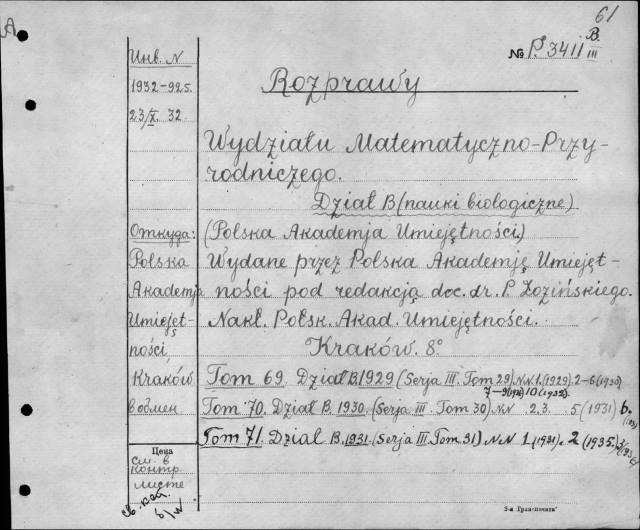 A
61
№ P. 3411 B/III
Инв. N
1932-925.
23/X. 32.
Rozprawy
Wydziału Matematyczno-Przy-
rodniczego.
Dział B (nauki biologiczne)
Откуда:
(Polska Akademja Umiejętności)
Polska
Wydane przez Polska Akademję Umiejęt-
Akademja
ności pod redakcją doc. dr. P. Łozińskiego.
Umiejęt-
Nakł. Polsk. Akad. Umiejętności.
ności,
Kraków. 8°
Kraków
Tom 69. Dział B. 1929 (Serja III. Tom 29) N.N. 1. (1929). 2-6 (1930)
7-9 10 (1932).
в обмен.
Tom 70. Dział B. 1930. (Serja III. Tom 30) NN 2. 3. 5 (1931) 6.
Tom 71. Dział B. 1931. (Serja III. Tom 31) NN 1 (1931). 2 (1935).
Цена
см. в
контр.
листе